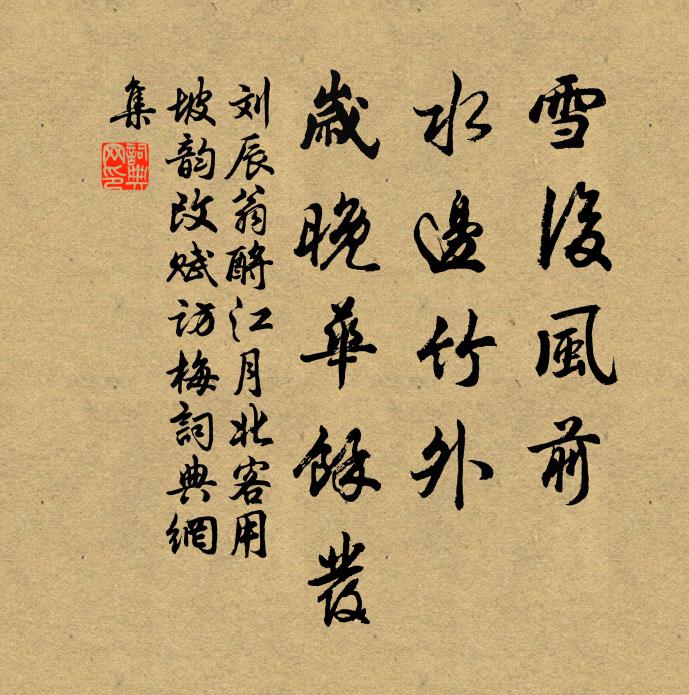 雪後風前
水邊竹外
歲晚華餘發
刘辰翁酹江月北客用
坡韵改赋访梅詞典網
集
詞典網印